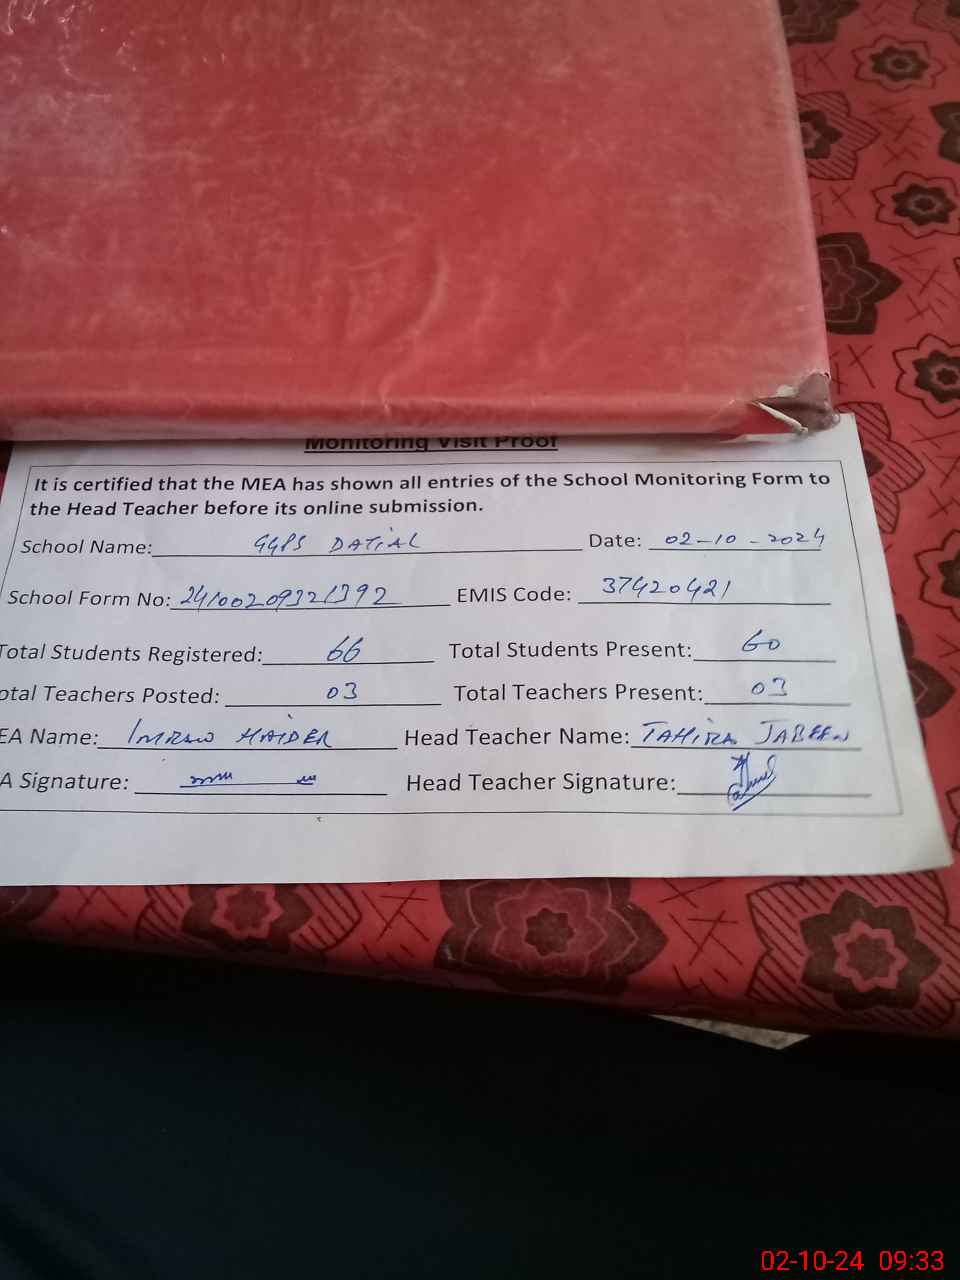 Monitoring Visit Proof
It is certified that the MEA has shown all entries of the School Monitoring Form to
the Head Teacher before its online submission.
School Name: GGPS DATIAL Date: 02-10-2024
School Form No: 24100209321392 EMIS Code: 37420421
Total Students Registered: 66 Total Students Present: 60
otal Teachers Posted: 03 Total Teachers Present: 03
EA Name: IMRAN HAIDER Head Teacher Name: TAHIRA JABEEN
A Signature: Head Teacher Signature:
02-10-24 09:33